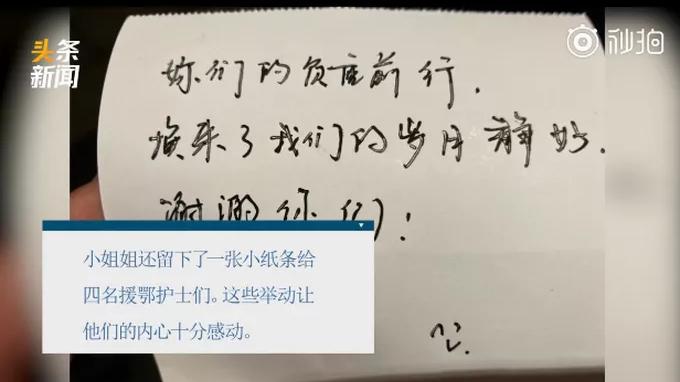 头条
新闻
秒拍
你们的负重前行,
换来了我们的岁月静好.
谢谢你们!
小姐姐还留下了一张小纸条给
四名援鄂护士们。这些举动让
他们的内心十分感动。